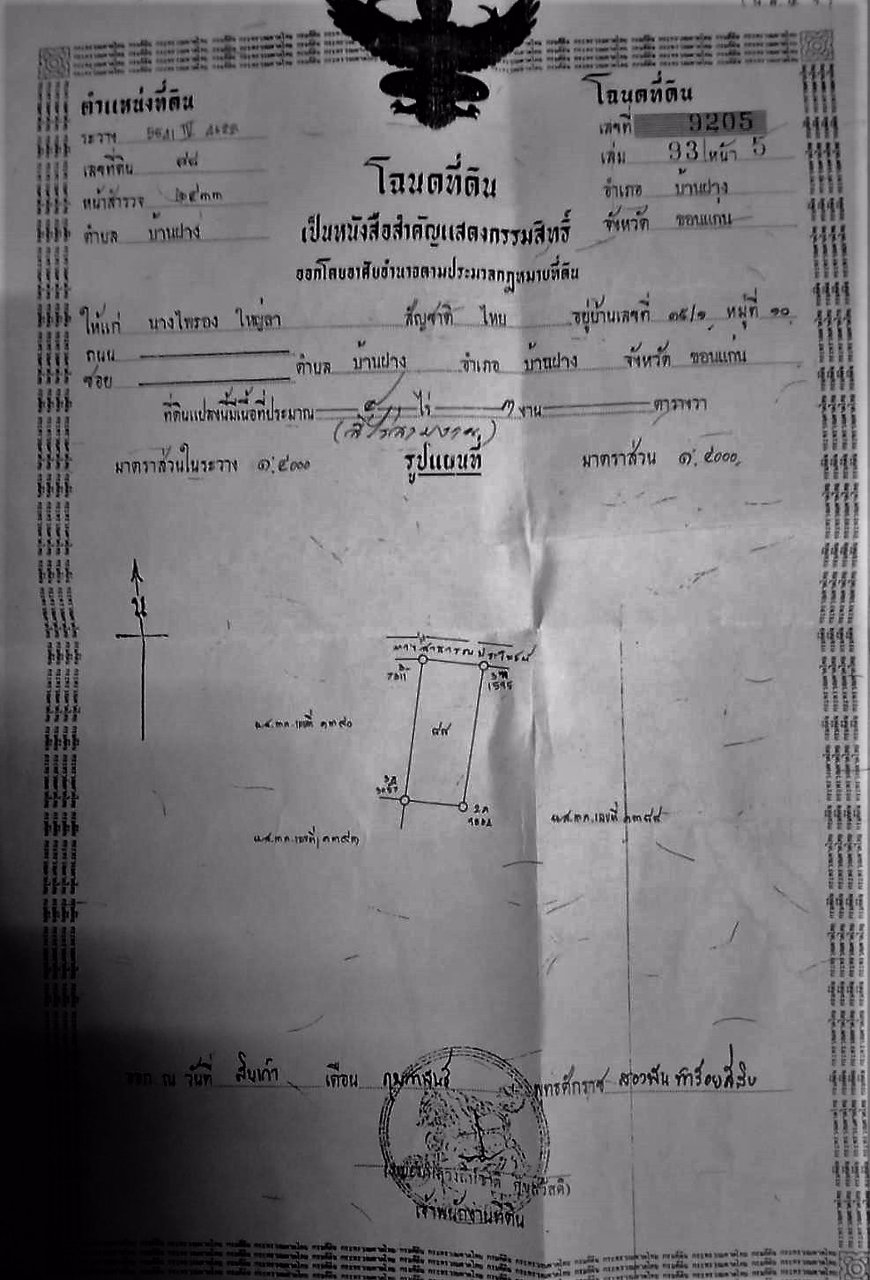 ตำแหน่งที่ดิน
ระวาง
เลขที่ดิน ๗๘
หน้าสำรวจ ๒๔๓๓
ตำบล บ้านฝาง
โฉนดที่ดิน
เลขที่ 9205
เล่ม 93 หน้า 5
อำเภอ บ้านฝาง
จังหวัด ขอนแก่น
โฉนดที่ดิน
เป็นหนังสือสำคัญแสดงกรรมสิทธิ์
ออกโดยอาศัยอำนาจตามประมวลกฎหมายที่ดิน
ให้แก่ นางไพรอง ใหญ่ลา สัญชาติ ไทย อยู่บ้านเลขที่ ๓๕/๑ หมู่ที่ ๑๐
ถนน
ซอย ตำบล บ้านฝาง อำเภอ บ้านฝาง จังหวัด ขอนแก่น
ที่ดินแปลงนี้มีเนื้อที่ประมาณ ๔ ไร่ ๓ งาน ตารางวา
(สี่ไร่สามงาน)
มาตราส่วนในระวาง ๑:๔๐๐๐ รูปแผนที่ มาตราส่วน ๑:๔๐๐๐
น
ทางสาธารณประโยชน์
น.ส.๓ก. เลขที่ ๑๓๙๐
น.ส.๓ก. เลขที่
น.ส.๓ก. เลขที่
ออก ณ วันที่ สิบเก้า เดือน กุมภาพันธ์ พุทธศักราช สองพันห้าร้อยสี่สิบ
เจ้าพนักงานที่ดิน